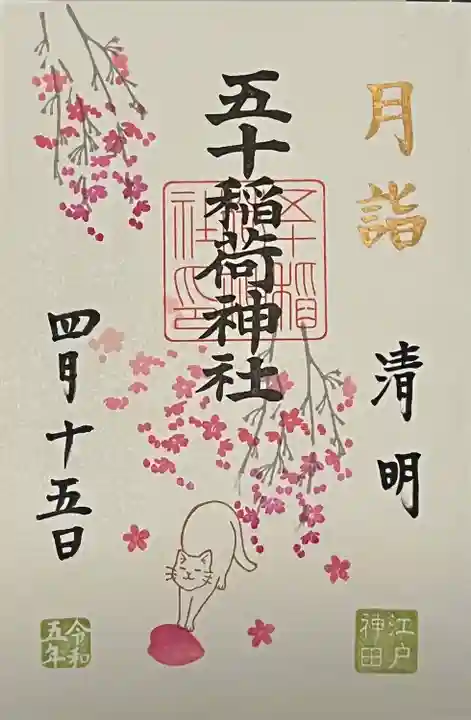 月詣
清明
江戸
神田
五十稲荷神社
五十稲
荷神
社之印
四月十五日
令和
五年